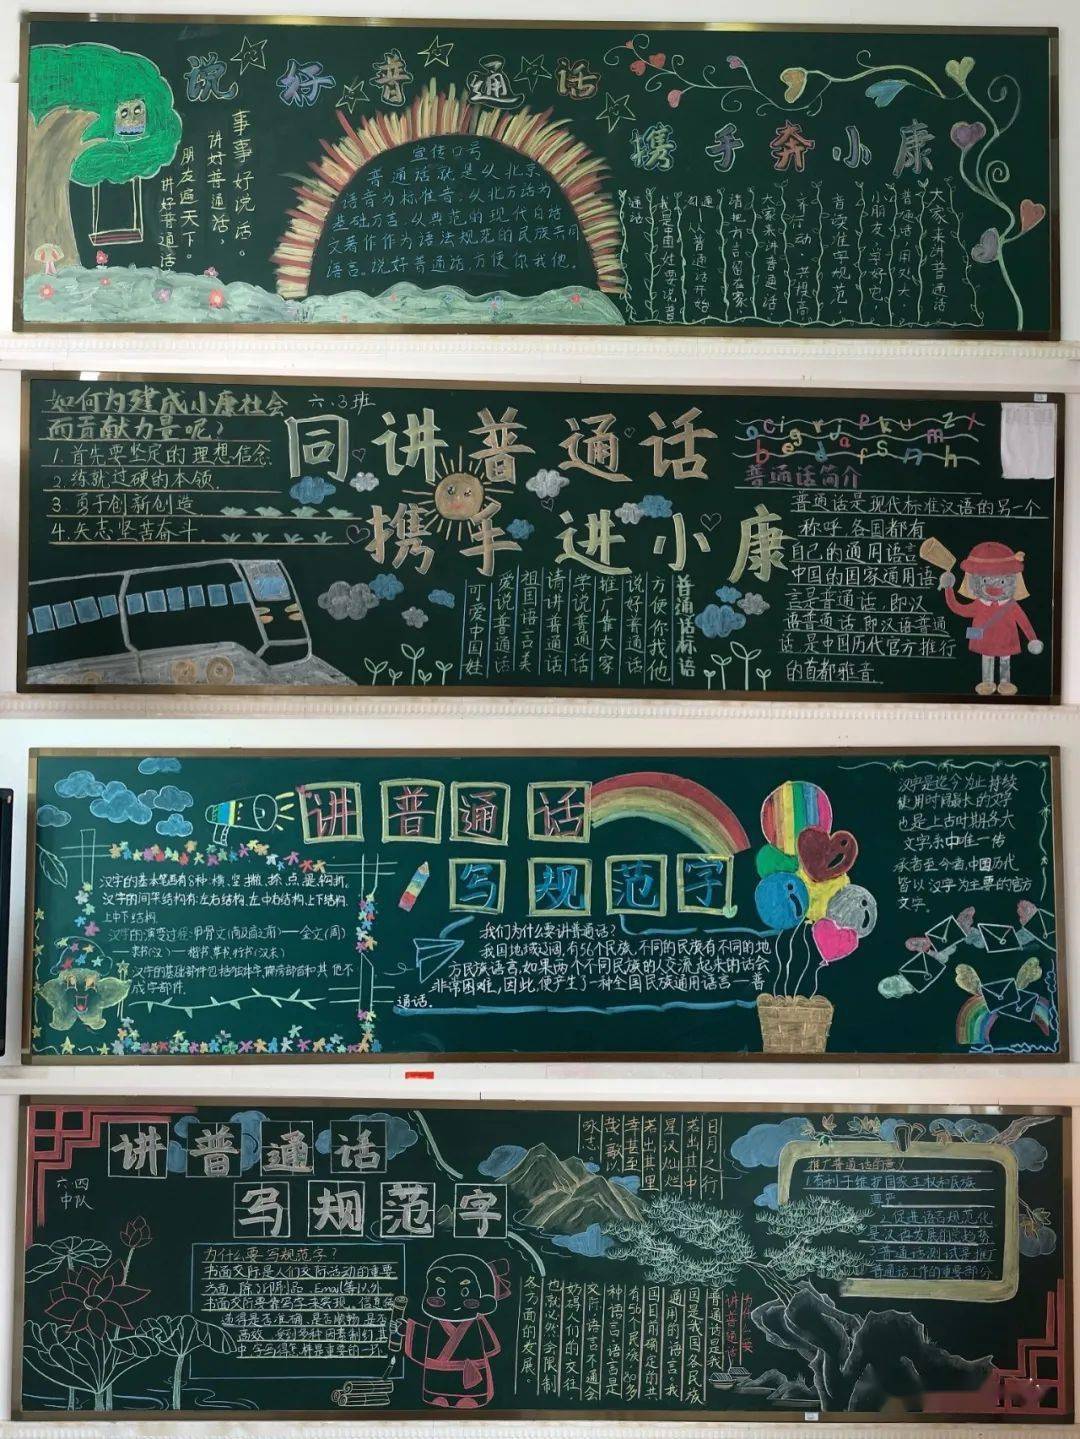 说好普通话
携手奔小康
事事好说话。
讲好普通话,
朋友遍天下。
讲好普通话
宣传口号
普通话就是以北京
语音为标准音,以北方话为
基础方言,以典范的现代白话
文著作作为语法规范的民族共同
语言。说好普通话,方便你我他。
大家来讲普通话
普通话,用处大,
小朋友,学好它,
音读准,字规范,
齐行动,共提高
大家来讲普通话
请把方言留在家,
从普通话开始
我是中国娃要说普
通话
如何为建成小康社会
而贡献力量呢?
1.首先要坚定的理想信念
2.练就过硬的本领
3.勇于创新创造
4.矢志坚苦奋斗
六.3班
同讲普通话
携手进小康
普通话标语
方便你我他
说好普通话
推广靠大家
学说普通话
请讲普通话
祖国语言美
爱说普通话
可爱中国娃
普通话简介
普通话是现代标准汉语的另一个
称呼各国都有
自己的通用语言
中国的国家通用语
言是普通话,即汉
语普通话,即汉语普通
话是中国历代官方推行
的首都雅音
讲普通话
写规范字
汉字的基本笔画有8种:横、竖、撇、捺、点、提、钩、折。
汉字的间架结构有:左右结构、左中右结构、上下结构、
上中下结构。
汉字的演变过程:甲骨文(商)
金文(周)
隶书(汉)——楷书、草书、行书(汉末)
成字部件.
我们为什么要讲普通话?
我国地域辽阔,有56个民族,不同的民族有不同的地
方民族语言,如果两个不同民族的人交流起来的话会
非常困难,因此,便产生了一种全国民族通用语言——普
通话.
汉字是迄今为止持续
使用时间最长的文字
也是上古时期各大
文字系中唯一传
承者至今者,中国历代
皆以汉字为主要的官方
文字。
讲普通话
写规范字
六.四
中队
为什么要写规范字?
书面交际是人们交际活动的重要
方面,除了印刷品、Email等以外
书面交际要靠写字来实现,信息传
递得是否准确、是否顺畅、是否
高效,受到多种因素制约,其
中,字写得怎样是重要的一环
日月之行
若出其中
星汉灿烂
若出其里
幸甚至
哉,歌以
咏志。
为什么要
讲普通话
普通话是我
国是我国各民族
通用的语言。我
国目前确定的共
有56个民族,80多
种语言,语言是
交际,语言不通会
妨碍人们的交往,
也就必然会限制
各方面的发展。
推广普通话的意义
1.有利于维护国家主权和民族
尊严
2.促进语言规范化
是汉语发展的总趋势
3.普通话测试是推广
普通话工作的重要部分